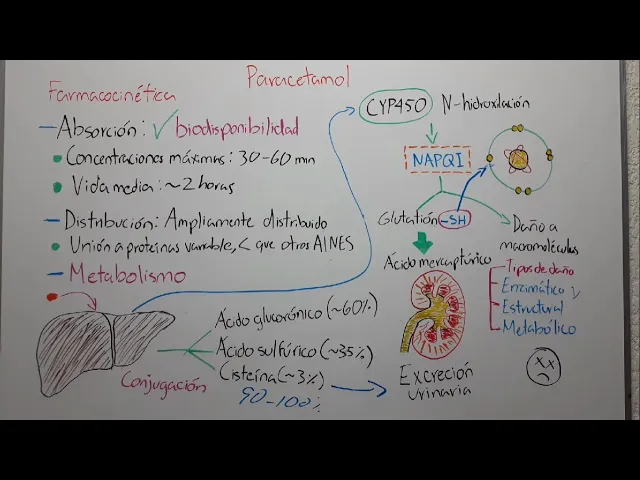 Paracetamol
Farmacocinética
Absorción: ✓ biodisponibilidad
Concentraciones máximas: 30-60 min
Vida media: ~2 horas
Distribución: Ampliamente distribuido
Unión a proteínas variable, < que otros AINES
Metabolismo
Ácido glucorónico (~60%)
Ácido sulfúrico (~35%)
Cisteína (~3%)
Conjugación
90-100%
CYP450 N-hidroxilación
NAPQI
Glutatión -SH
Daño a
macromoléculas
Ácido mercaptúrico
Tipos de daño
Enzimático
Estructural
Metabólico
Excreción
urinaria